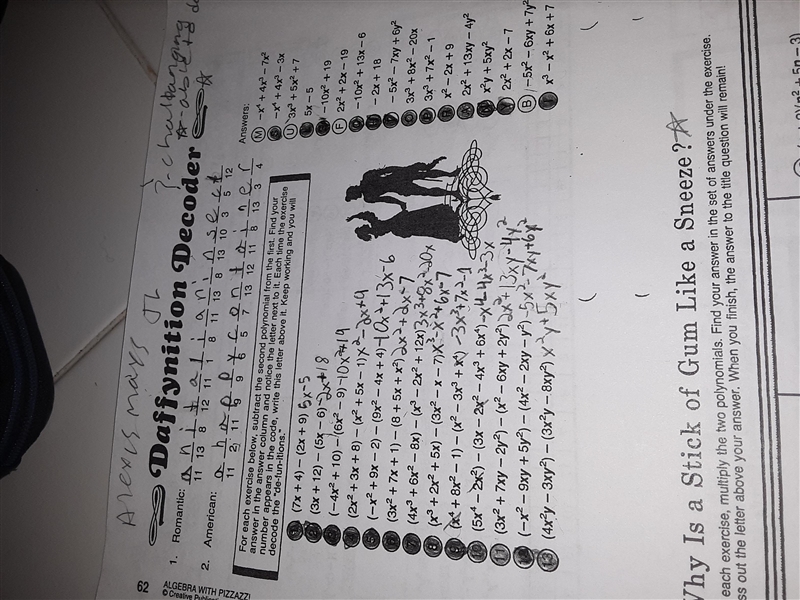 Alexis Mays
62
Daffynition Decoder
1. Romantic: a n i t a l i a n i n s e c t
11 13 8 12 11 1 8 11 13 8 13 10 3 5 12
2. American: a h a p p y c o n t a i n e r
11 2 11 9 9 6 5 7 13 12 11 8 13 3 4
For each exercise below, subtract the second polynomial from the first. Find your
answer in the answer column and notice the letter next to it. Each time the exercise
number appears in the code, write this letter above it. Keep working and you will
decode the "de-fun-itions."
(7x + 4) − (2x + 9) 5x-5
(3x + 12) − (5x − 6) -2x+18
(−4x² + 10) − (6x² − 9) -10x²+19
(2x² + 3x + 8) − (x² + 5x − 1) x²-2x+9
(−x² + 9x − 2) − (9x² − 4x + 4) -10x²+13x-6
(3x² + 7x + 1) − (8 + 5x + x²) 2x²+2x-7
(4x³ + 6x² − 8x) − (x³ − 2x² + 12x) 3x³+8x²-20x
(x³ + 2x² + 5x) − (3x² − x − 7) x³-x²+6x-7
(x⁴ + 8x² − 1) − (x² − 3x³ + x⁴) -3x³+7x²-1
10 (5x⁴ − 2x²) − (3x − 2x² − 4x³ + 6x⁴) -x⁴-4x³-3x
11 (3x² + 7xy − 2y²) − (x² − 6xy + 2y²) 2x²+13xy-4y²
12 (−x² − 9xy + 5y²) − (4x² − 2xy − y²) -5x²-7xy+6y²
13 (4x²y − 3xy²) − (3x²y − 8xy²) x²y+5xy²
Answers:
M −x⁴ + 4x³ − 7x²
−x⁴ + 4x³ − 3x
U 3x³ + 5x² + 7
5x − 5
−10x² + 19
F 2x² + 2x − 19
−10x² + 13x − 6
−2x + 18
−5x² − 7xy + 6y²
3x³ + 8x² − 20x
3x³ + 7x² − 1
x² − 2x + 9
2x² + 13xy − 4y²
x²y + 5xy²
2x² + 2x − 7
B −5x² − 6xy + 7y²
x³ − x² + 6x + 7
ALGEBRA WITH PIZZAZZ!
© Creative
Why Is a Stick of Gum Like a Sneeze?
each exercise, multiply the two polynomials. Find your answer in the set of answers under the exercise.
out the letter above your answer. When you finish, the answer to the title question will remain!